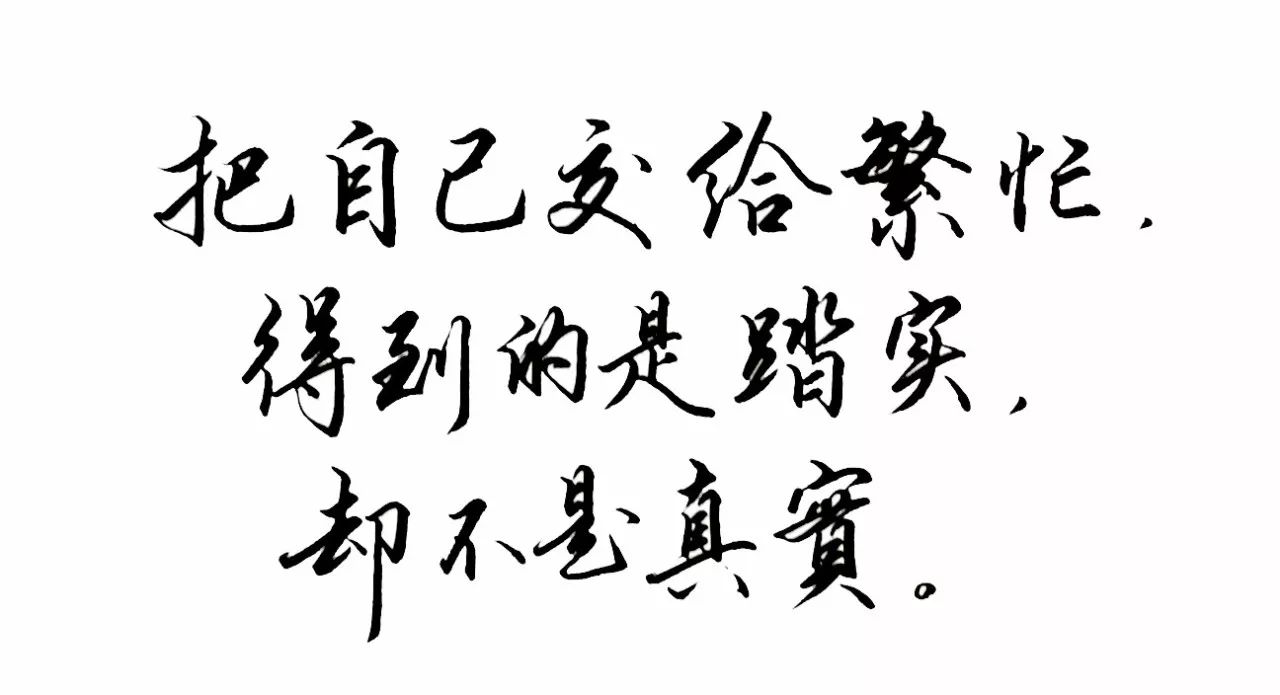 把自己交给繁忙，
得到的是踏实，
却不是真實。